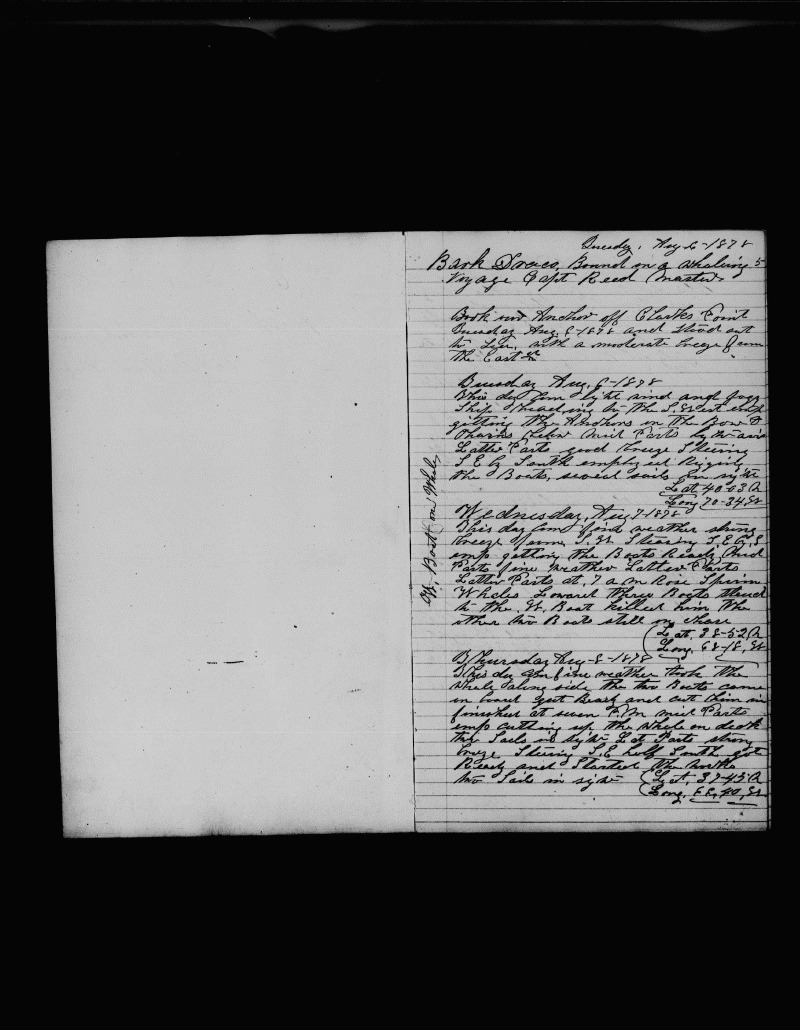 Tuesday, Aug 6-1878
Bark Draco, Bound on a Whaling 5
Voyage Capt Reed Master
Took our Anchor off Clarks Point
Tuesday Aug, 6-1878 and Stood out
to Sea, with a moderate breeze from
the East
Tuesday Aug, 6-1878
This day Com light wind and fogg
Ship heading by the S. West emp
gitting the Anchors on the Bow &
Chains below Mid Parts light airs
Latter Parts good breeze Steering
S E by South employed Rigging
the Boats, several sails in sight
Lat 40-03 N
Long 70-34, W
Wednesday, Aug 7-1878
This day Com fine weather strong
breeze from S. W. Steering S, E by S
emp getting the Boats Ready, Mid
Parts fine weather Latter Parts
Latter Parts at, 7 a m Rose Sperm
Whales Lowered three Boats Struck
to the W, Boat killed him the
other two Boats still in chase
W, Boat on Whale,
(Lat. 38-52 N
Long. 68-18, W
Thursday Aug-8-1878
This day Com fine weather took the
whale along side the two Boats came
on board got Ready and cut him in
finished at seven P. M mid Parts
emp cutting up the whale on deck
two Sails in sight Lat Parts strong
breeze Steering S, E half South got
Ready and Started the works
two Sails in sight (Lat, 37-45 N
(Long, 66, 40, W